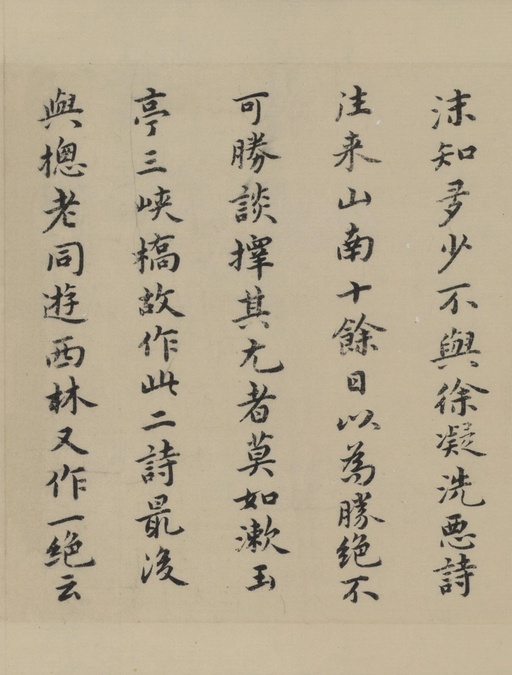 沫知多少不與徐凝洗悪詩
往来山南十餘日以為勝絶不
可勝談擇其尤者莫如漱玉
亭三峡橋故作此二詩最後
與摠老同遊西林又作一絶云